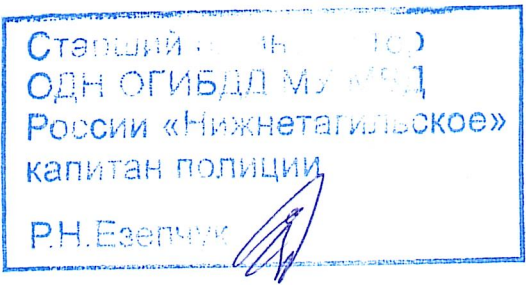 Старший
ОДН ОГИБДД МУ МВД
России «Нижнетагильское»
капитан полиции
Р.Н.Езепчук